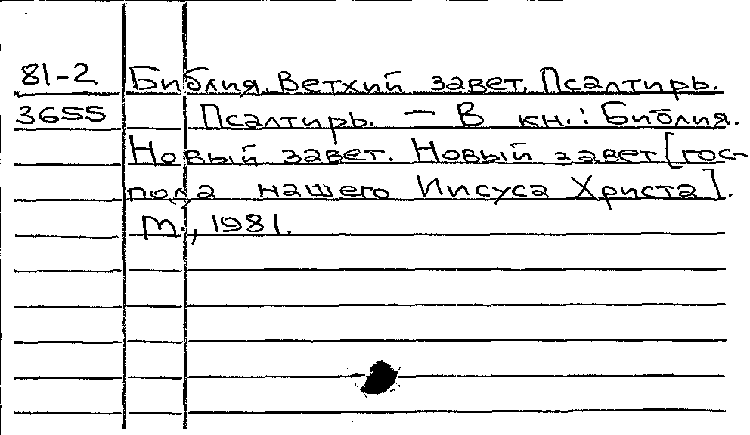 81-2 Библия. Ветхий завет. Псалтирь.
3655 Псалтирь. — В кн.: Библия.
Новый завет. Новый завет [гос-
пода нашего Иисуса Христа].
М., 1981.